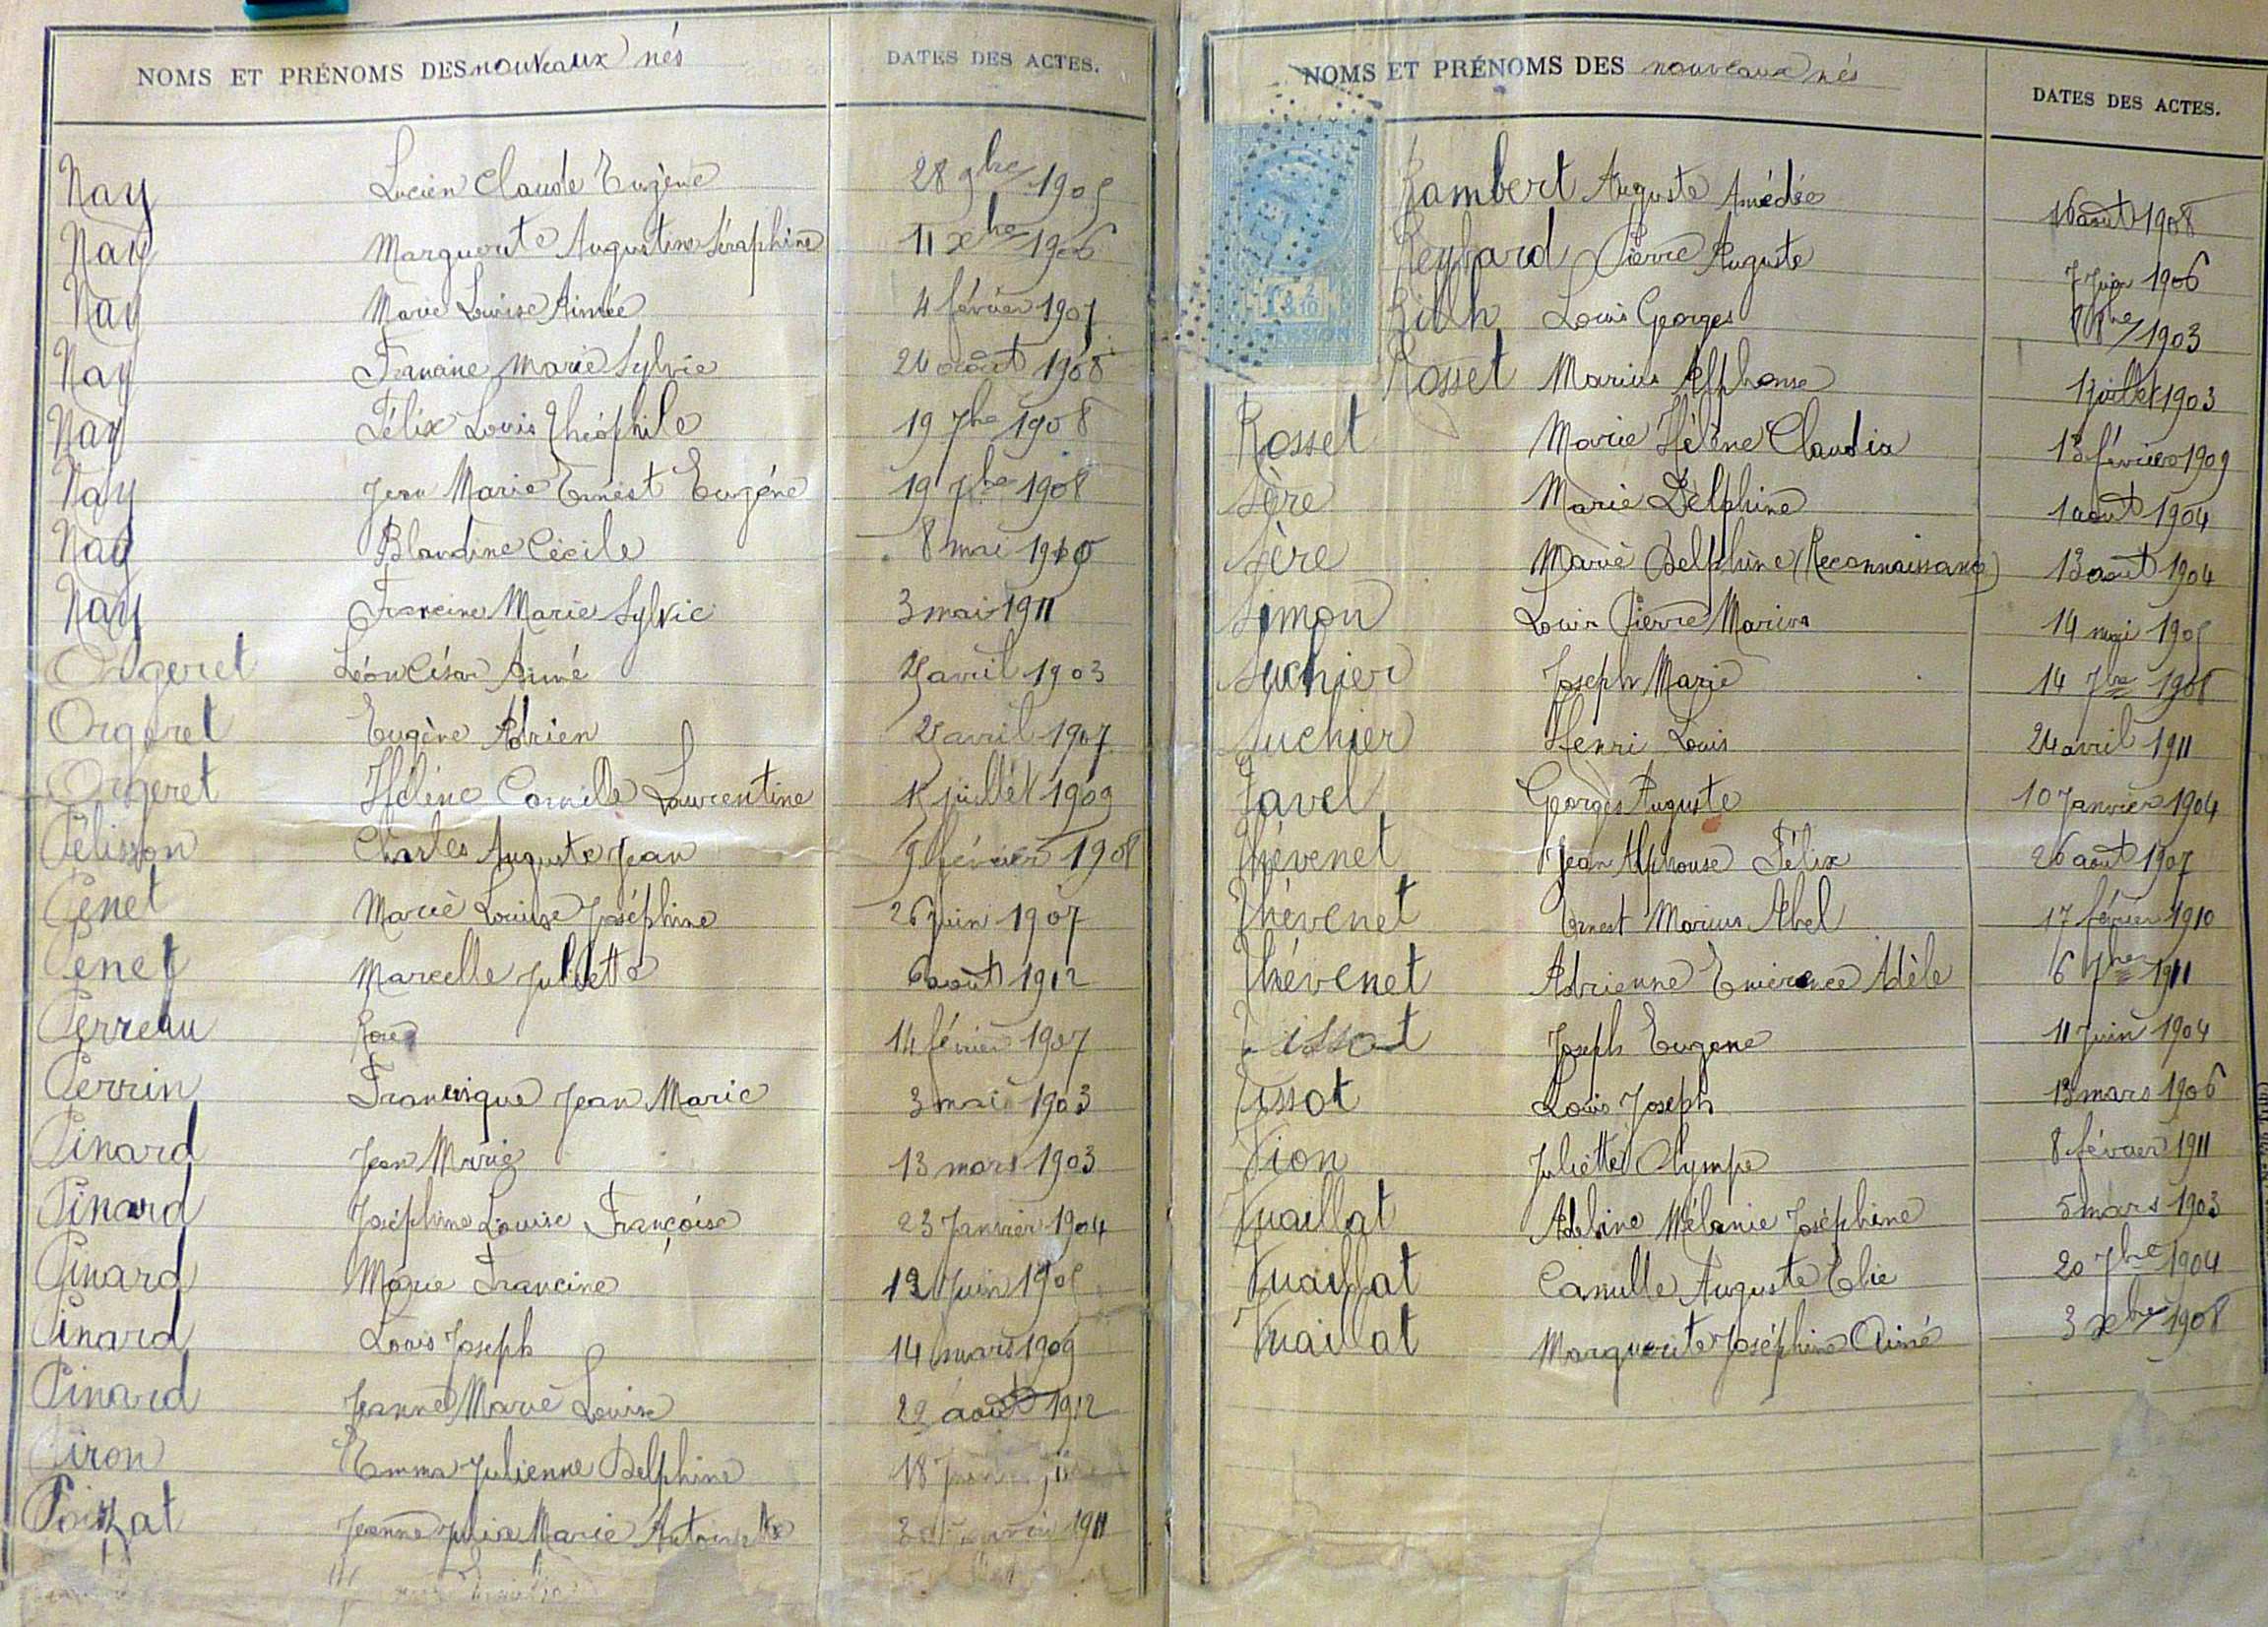 NOMS ET PRÉNOMS DES nouveaux nés DATES DES ACTES.
Nay Lucien Claude Eugène 28 9bre 1905
Nay Marguerite Augustine Séraphine 11 xbre 1906
Nay Marie Louise Aimée 4 février 1907
Nay Francine Marie Sylvie 24 août 1908
Nay Félix Louis Théophile 19 7bre 1908
Nay Jean Marie Ernest Eugène 19 7bre 1908
Nay Blandine Cécile 8 mai
Nay Francine Marie Sylvie 3 mai 1911
Orgeret Léon César Aimé avril 1903
Orgeret Eugène Adrien avril 1907
Orgeret Hélène Camille Laurentine juillet 1909
Pélisson Charles Auguste Jean 9 février 1908
Penet Marie Louise Joséphine 26 juin 1907
Penet Marcelle Juliette 6 août 1912
Perreau Rose 14 février 1907
Perrin Francisque Jean Marie 3 mai 1903
Pinard Jean Marie 13 mars 1903
Pinard Joséphine Louise Françoise 23 Janvier 1904
Pinard Marie Francine 12 Juin 1905
Pinard Louis Joseph 14 mars 1909
Pinard Jeanne Marie Louise 22 août 1912
Piron Emma Julienne Delphine 18
Poizat Jeanne Julie Marie Antoinette 1911
NOMS ET PRÉNOMS DES nouveaux nés DATES DES ACTES.
Rambert Auguste Amédée 16 août 1908
Reybard Pierre Auguste 7 Juin 1906
Louis Georges 1903
Rosset Marius Alphonse 1 juillet 1903
Rosset Marie Hélène Claudia 13 février 1909
Sère Marie Delphine 1 août 1904
Sère Marie Delphine (Reconnaissance) 13 août 1904
Simon Louis Pierre Marius 14 mai 1905
Suchier Joseph Marie 14 7bre 1908
Suchier Henri Louis 24 avril 1911
Tavel Georges Auguste 10 Janvier 1904
Thévenet Jean Alphonse Félix 26 août 1907
Thévenet Ernest Marius Abel 17 février 1910
Thévenet Adrienne Emérence Adèle 6 7bre 1911
Tissot Joseph Eugene 11 Juin 1904
Tissot Louis Joseph 13 mars 1906
Vion Juliette Olympe 8 février 1911
Vuaillat Adeline Mélanie Joséphine 5 mars 1903
Vuaillat Camille Auguste Elie 20 7bre 1904
Vuaillat Marguerite Joséphine Aimé 3 xbre 1908